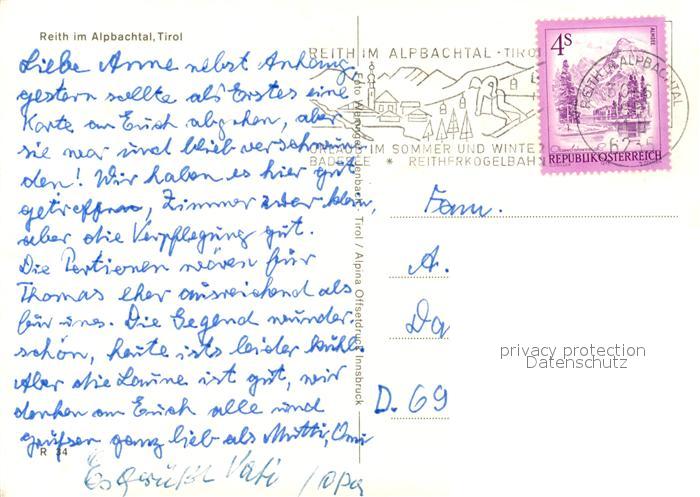 Reith im Alpbachtal, Tirol
Liebe Anne nebst Anhang,
gestern sollte als Erstes eine
Karte an Euch abgehen, aber
sie war und blieb verschwun
den! Wir haben es hier gut
getroffen, Zimmer zwar klein,
aber die Verpflegung gut.
Die Portionen wären für
Thomas eher ausreichend als
für uns. Die Gegend wunder-
schön, heute ists leider kühl.
Aber die Laune ist gut, wir
denken an Euch alle und
grüßen ganz lieb als Mutti, Omi
Es grüßt Vati / Opa
R 34
Foto Jenbach, Tirol / Alpina Offsetdruck Innsbruck
REITH IM ALPBACHTAL - TIROL
URLAUB IM SOMMER UND WINTER
BADESEE * REITHERKOGELBAHN
REITH IM ALPBACHTAL
6235
4S
ALMSEE
REPUBLIK ÖSTERREICH
Fam.
A.
Da
D. 69
privacy protection
Datenschutz